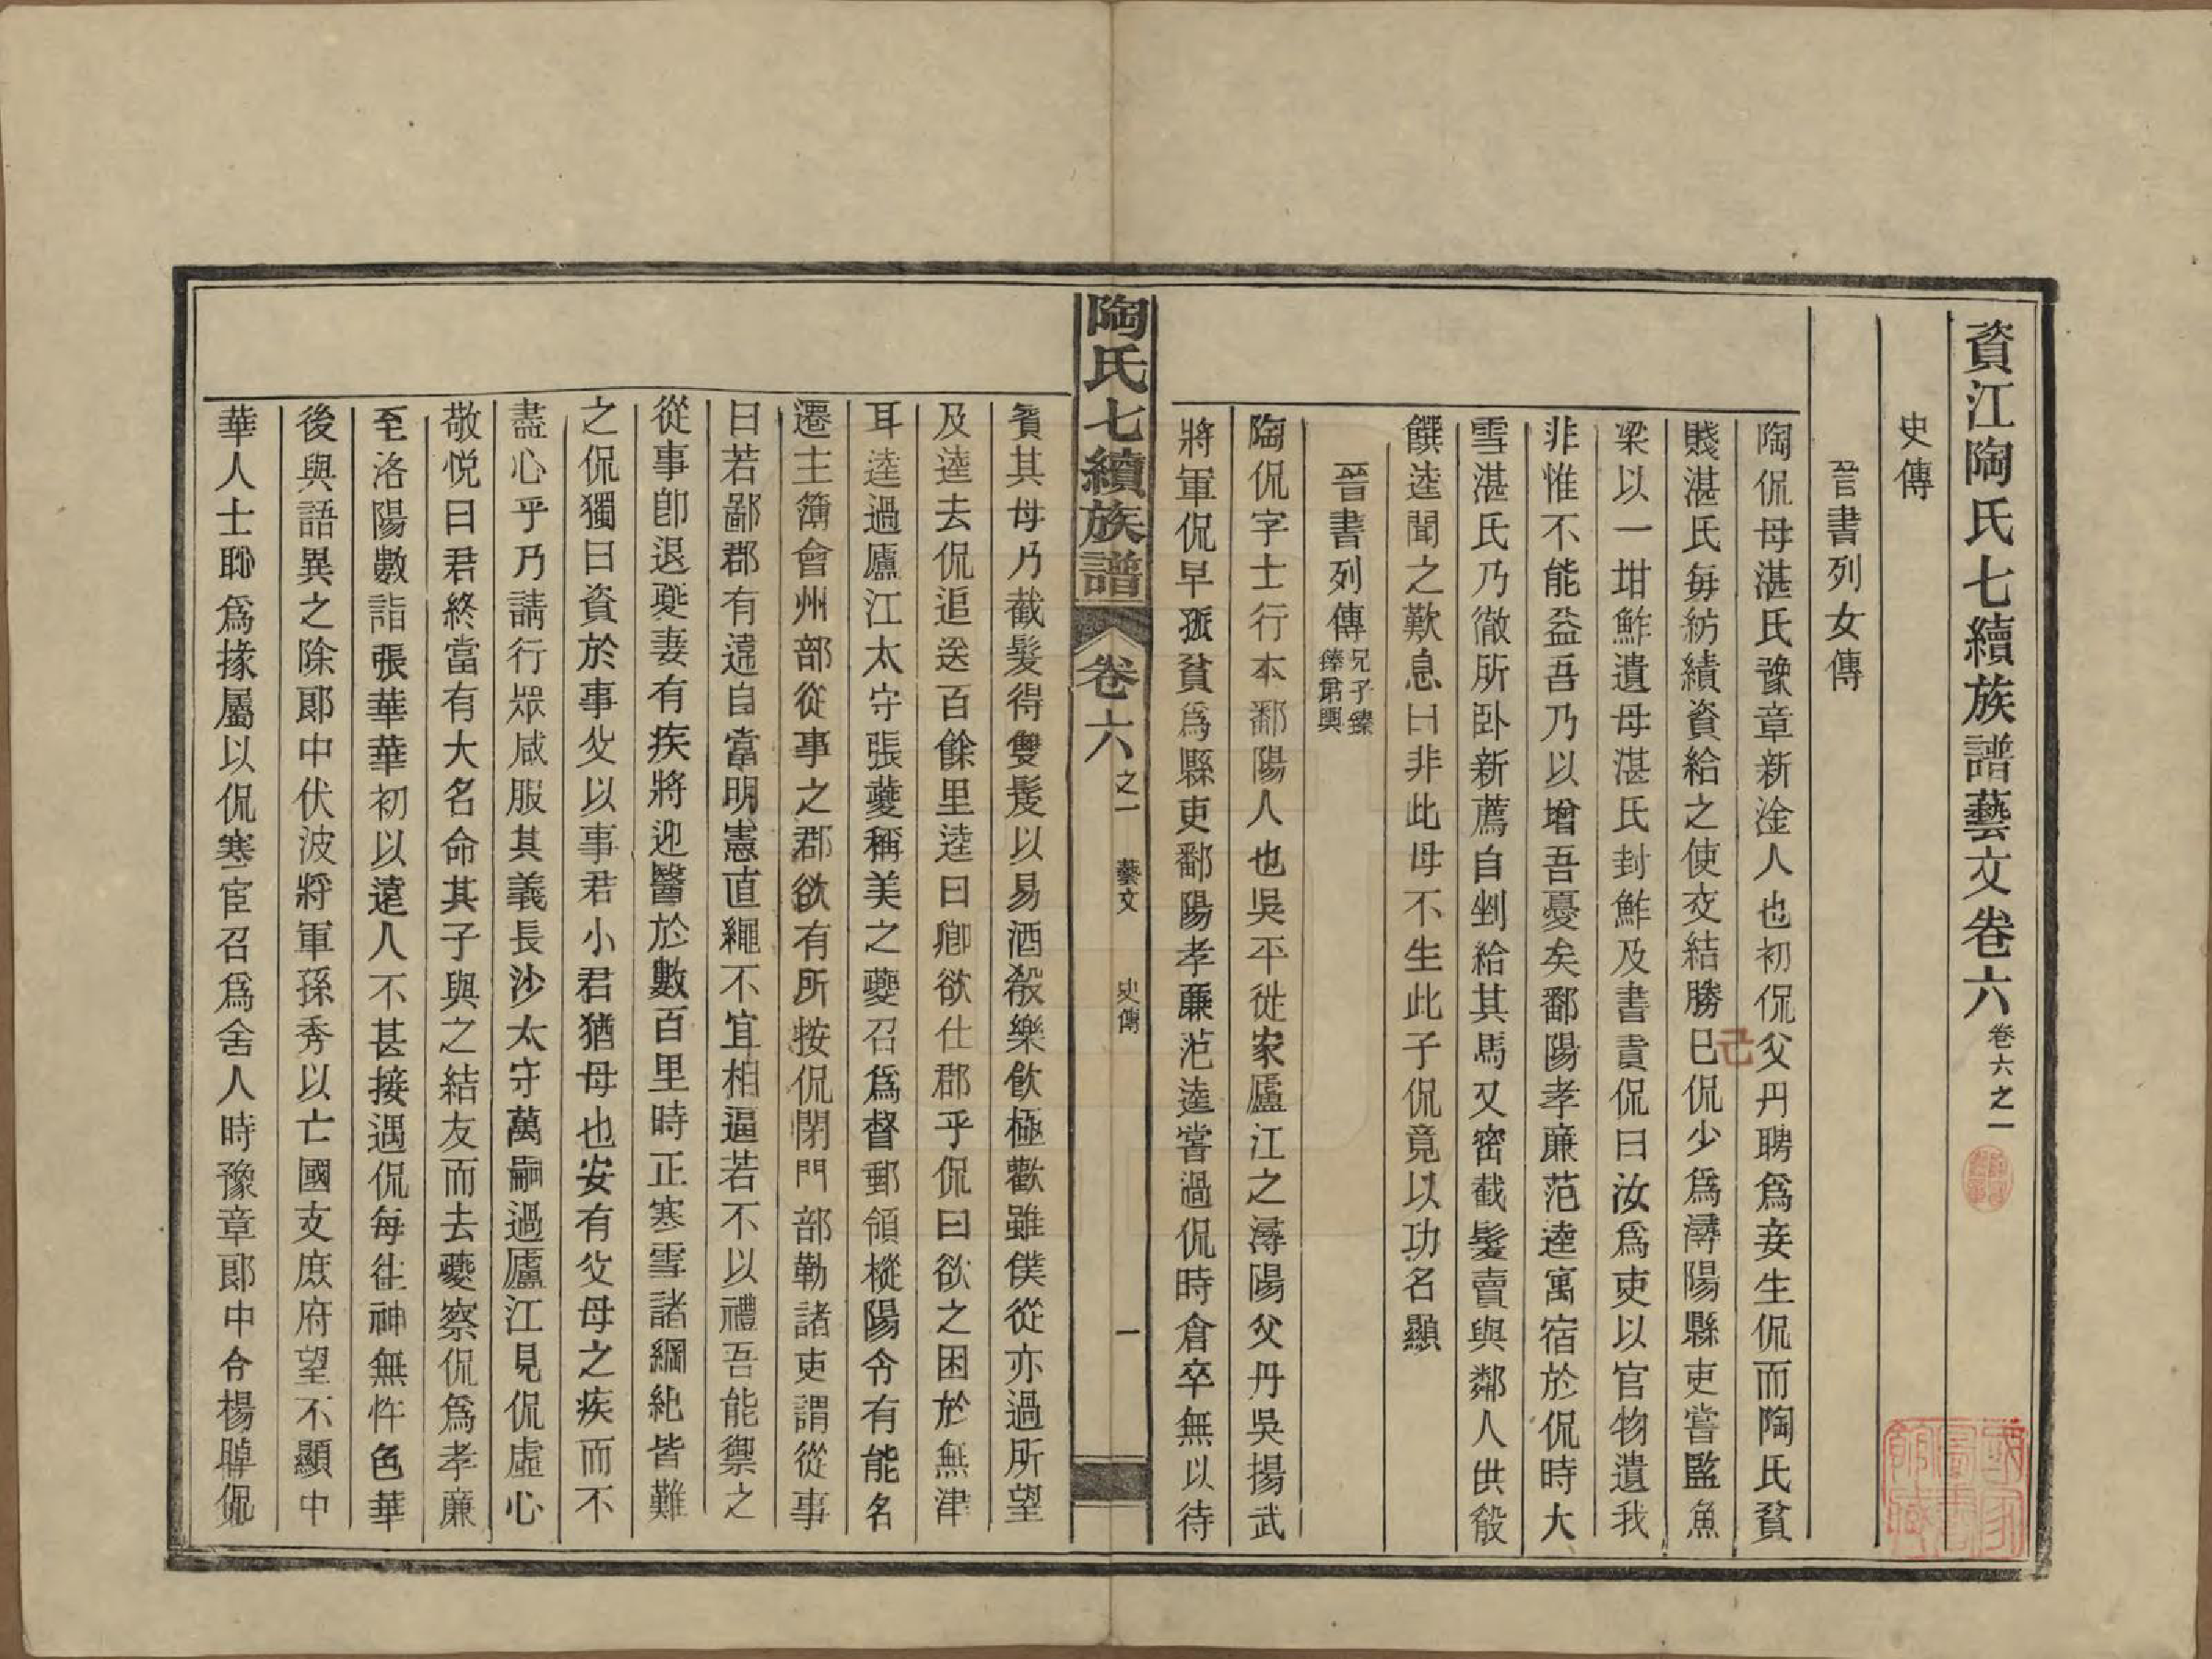 資江陶氏七續族譜藝文卷六卷六之一
史傳
晉書列女傳
陶侃母湛氏豫章新淦人也初侃父丹聘爲妾生侃而陶氏貧
賤湛氏每紡績資給之使交結勝巳侃少爲潯陽縣吏嘗監魚
己
梁以一坩鮓遺母湛氏封鮓及書責侃曰汝爲吏以官物遺我
非惟不能益吾乃以增吾憂矣鄱陽孝廉范逵寓宿於侃時大
雪湛氏乃徹所卧新薦自剉給其馬又密截髮賣與鄰人供殽
饌逵聞之歎息曰非此母不生此子侃竟以功名顯
晉書列傳兄子臻
臻弟輿
陶侃字士行本鄱陽人也吳平徙家廬江之潯陽父丹吳揚武
將軍侃早孤貧爲縣吏鄱陽孝廉范逵嘗過侃時倉卒無以待
陶氏七續族譜 卷六之一 藝文 史傳 一
賓其母乃截髮得雙髲以易酒殽樂飲極歡雖僕從亦過所望
及逵去侃追送百餘里逵曰卿欲仕郡乎侃曰欲之困於無津
耳逵過廬江太守張夔稱美之夔召爲督郵領樅陽令有能名
遷主簿會州部從事之郡欲有所按侃閉門部勒諸吏謂從事
曰若鄙郡有違自當明憲直繩不宜相逼若不以禮吾能禦之
從事卽退夔妻有疾將迎醫於數百里時正寒雪諸綱紀皆難
之侃獨曰資於事父以事君小君猶母也安有父母之疾而不
盡心乎乃請行眾咸服其義長沙太守萬嗣過廬江見侃虛心
敬悅曰君終當有大名命其子與之結友而去夔察侃爲孝廉
至洛陽數詣張華華初以遠人不甚接遇侃每往神無忤色華
後與語異之除郎中伏波將軍孫秀以亡國支庶府望不顯中
華人士恥爲掾屬以侃寒宦召爲舍人時豫章郎中令楊晫侃